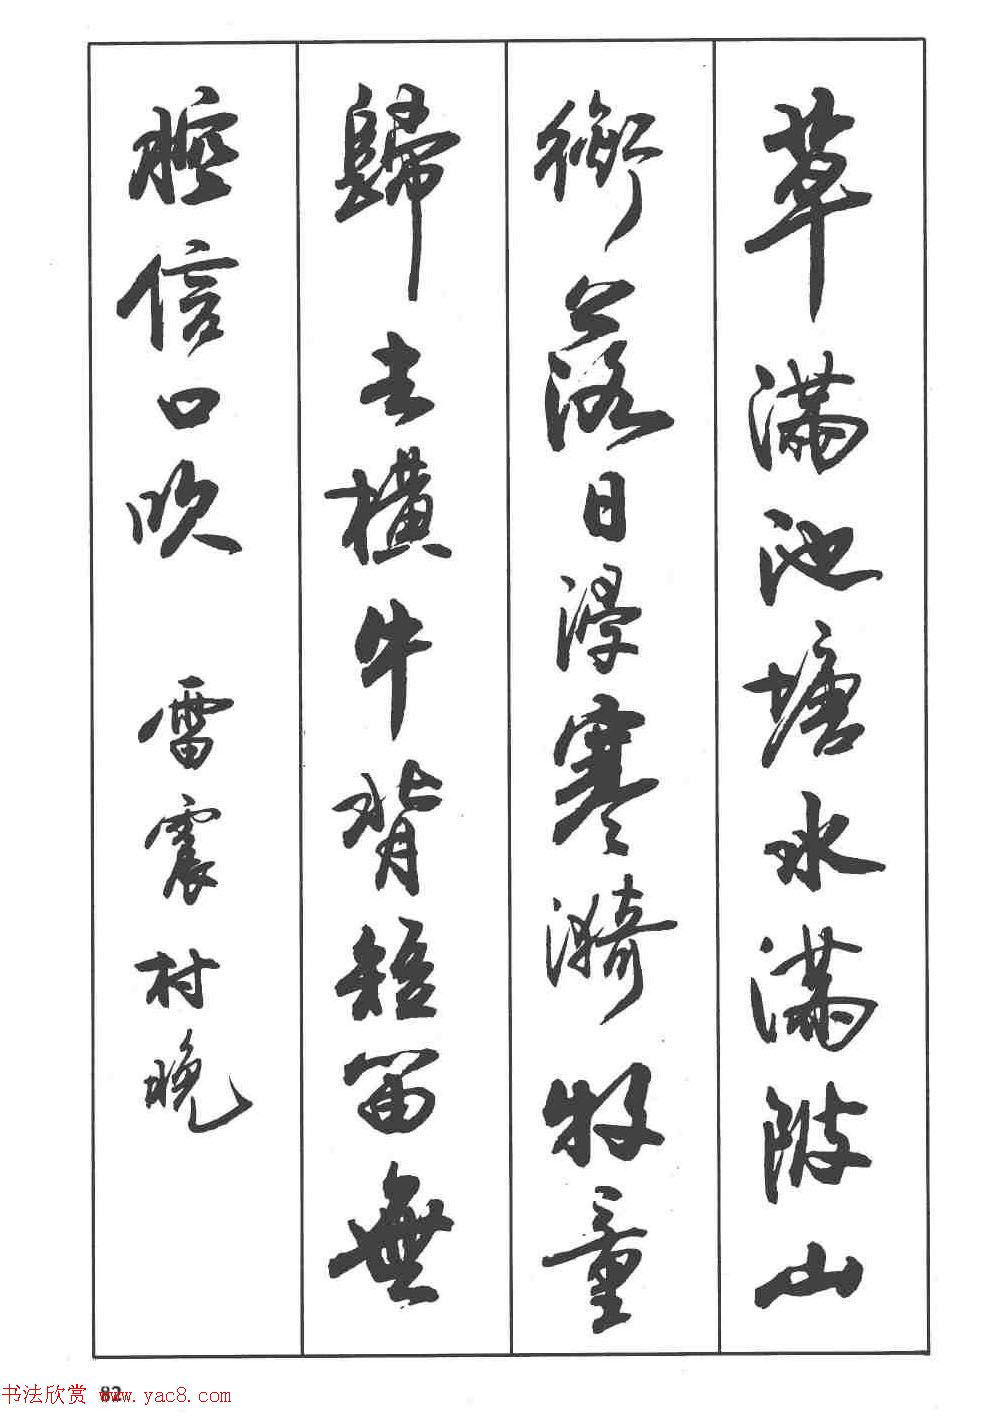 草滿池塘水滿陂山
銜落日浸寒漪牧童
歸去橫牛背短笛無
腔信口吹 雷震村晚
82
书法欣赏 www.yac8.com